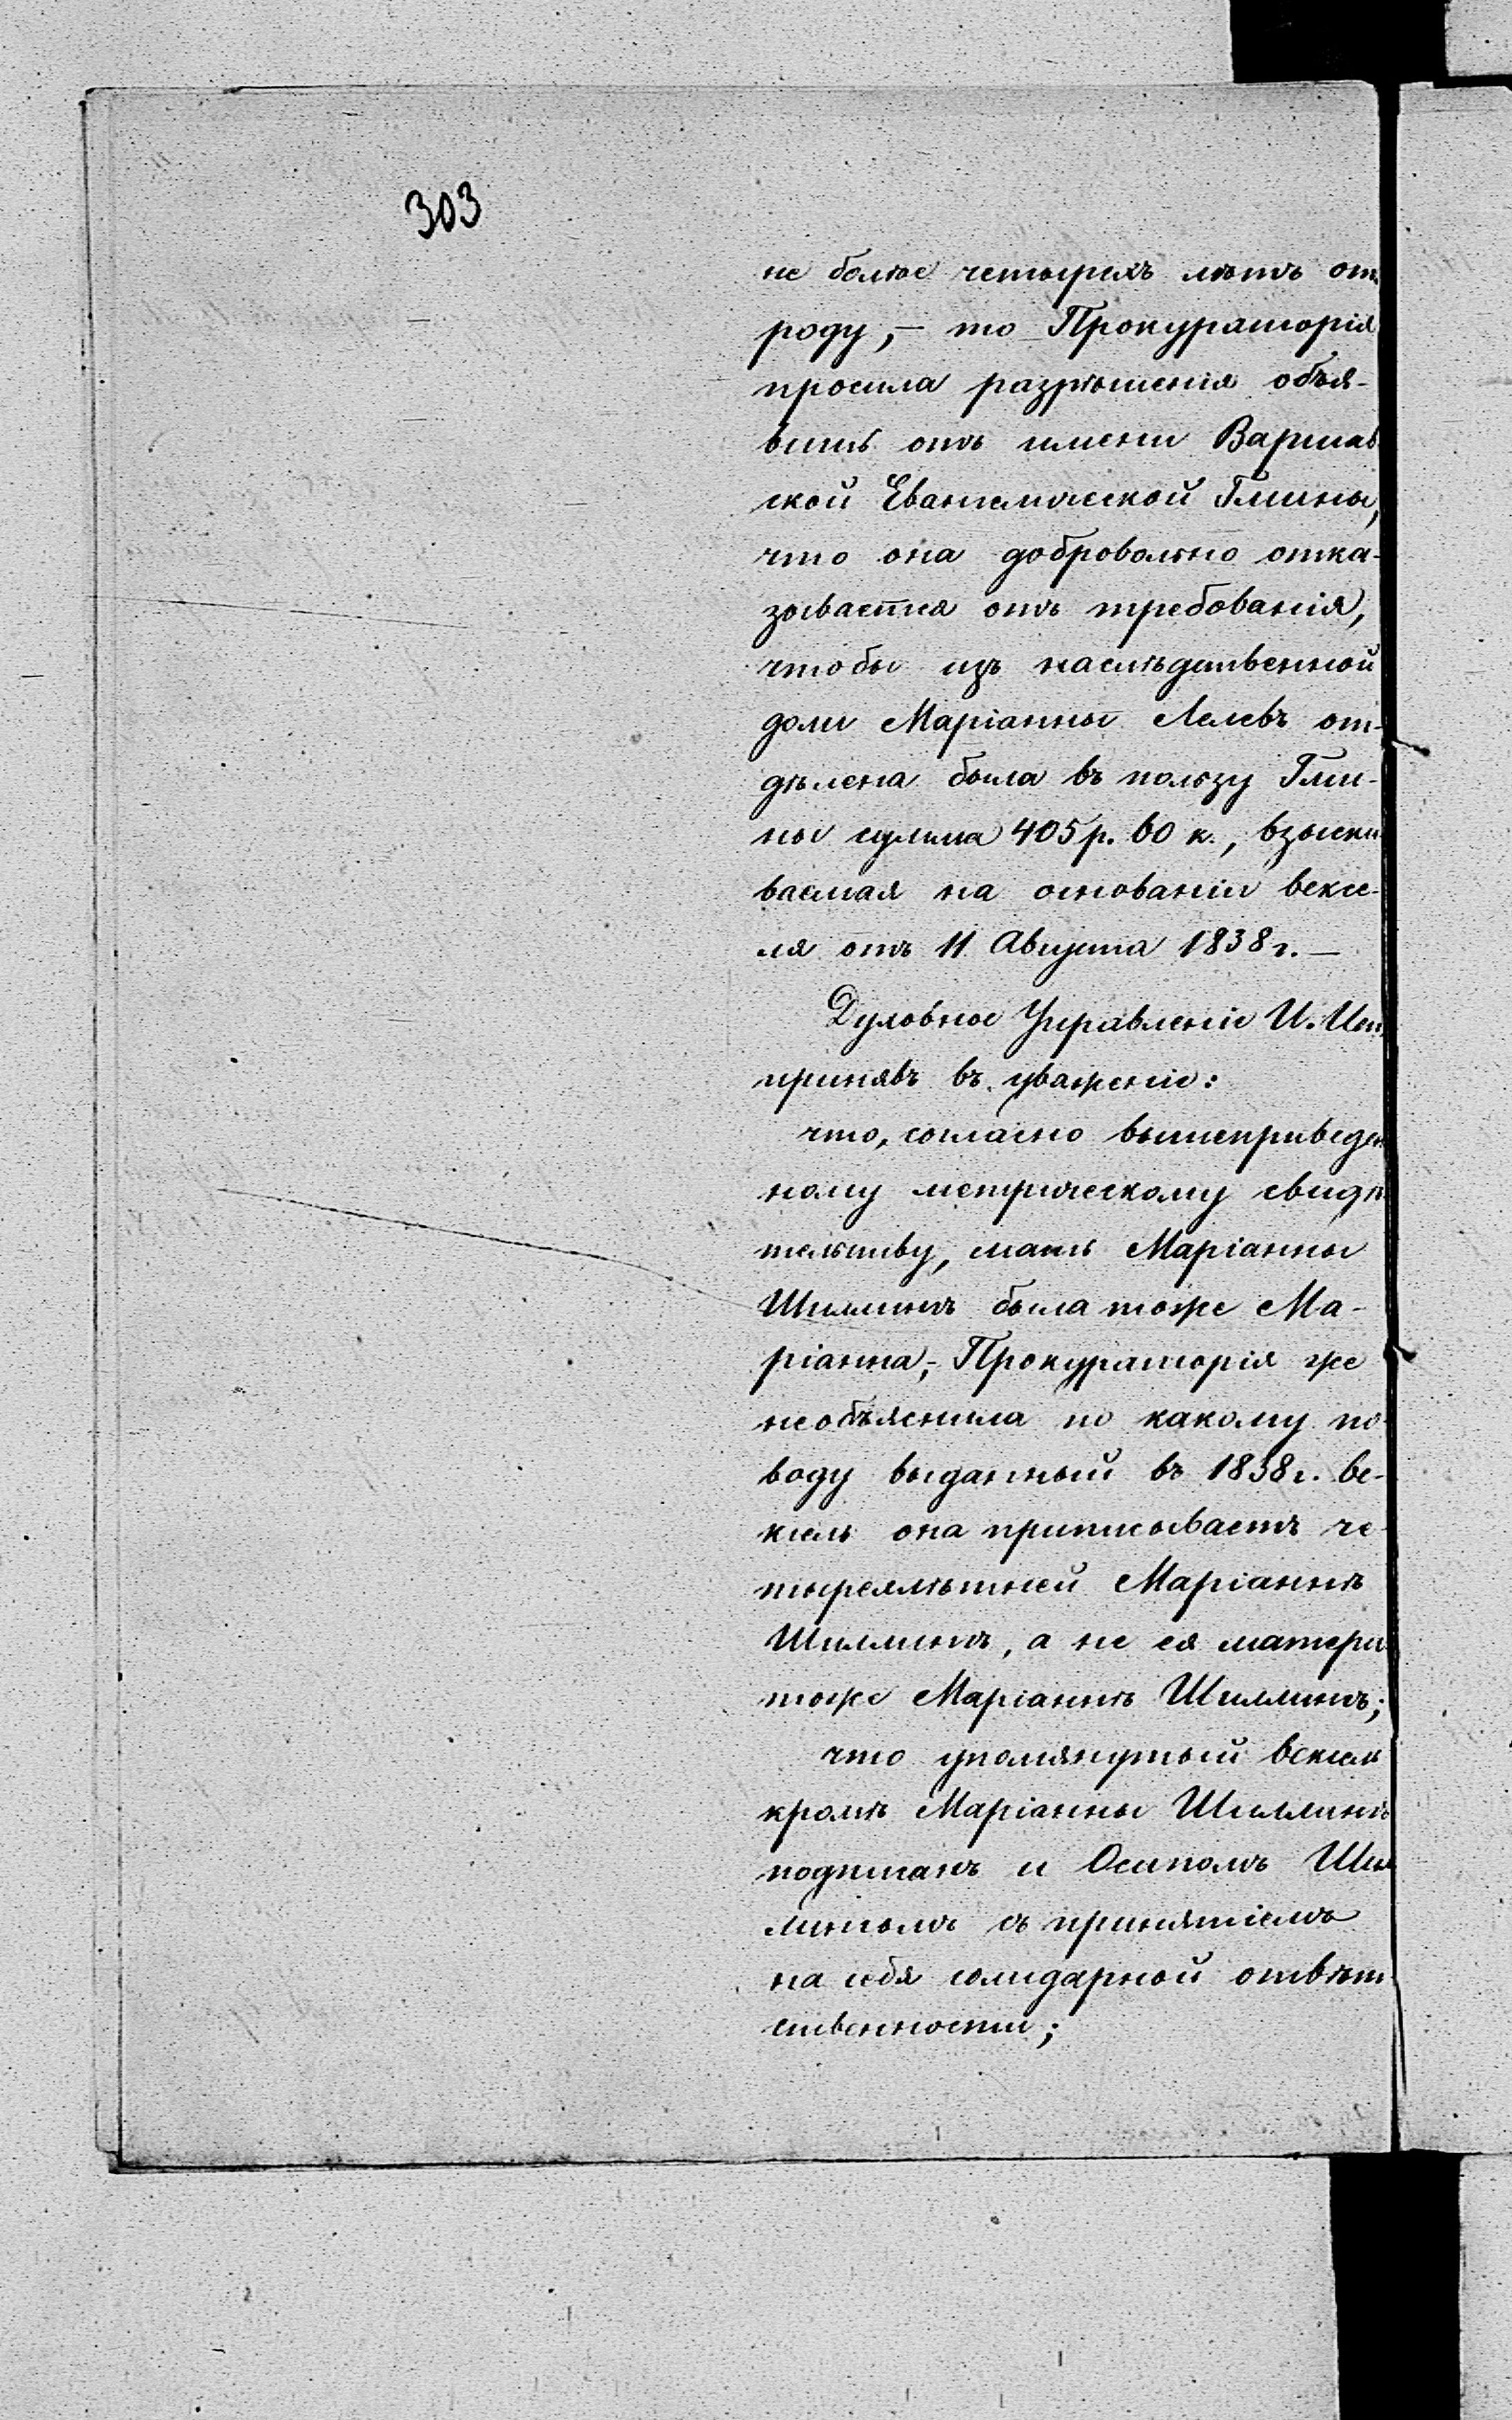 303
не болѣе четырехъ лѣтъ отъ
роду,– то Прокураторія
просила разрѣшенія объя-
вить отъ имени Варшав
ской Евангелической Гмины,
что она добровольно отка-
зывается отъ требованія,
чтобы изъ наслѣдственной
доли Маріанны Лелевъ от-
дѣлена была въ пользу Гми-
ны сумма 405 р. 60 к., взыски
ваемая на основаніи вексе-
ля отъ 11 Августа 1838 г. –
Духовное Управленіе И. Исп
принявъ въ уваженіе:
что, согласно вышеприведен
ному метрическому свидѣ
тельству, мать Маріанны
Шиллингъ была тоже Ма-
ріанна,- Прокураторія же
необъяснила по какому по-
воду выданный въ 1838 г. ве-
ксель она приписываетъ че-
тырехлѣтней Маріаннѣ
Шиллингъ, а не ея матери
тоже Маріаннѣ Шиллингъ;
что упомянутый вексель
кромѣ Маріанны Шиллингъ
подписанъ и Осипомъ Шил
лингомъ съ принятіемъ
на себя солидарной отвѣт
ственности;